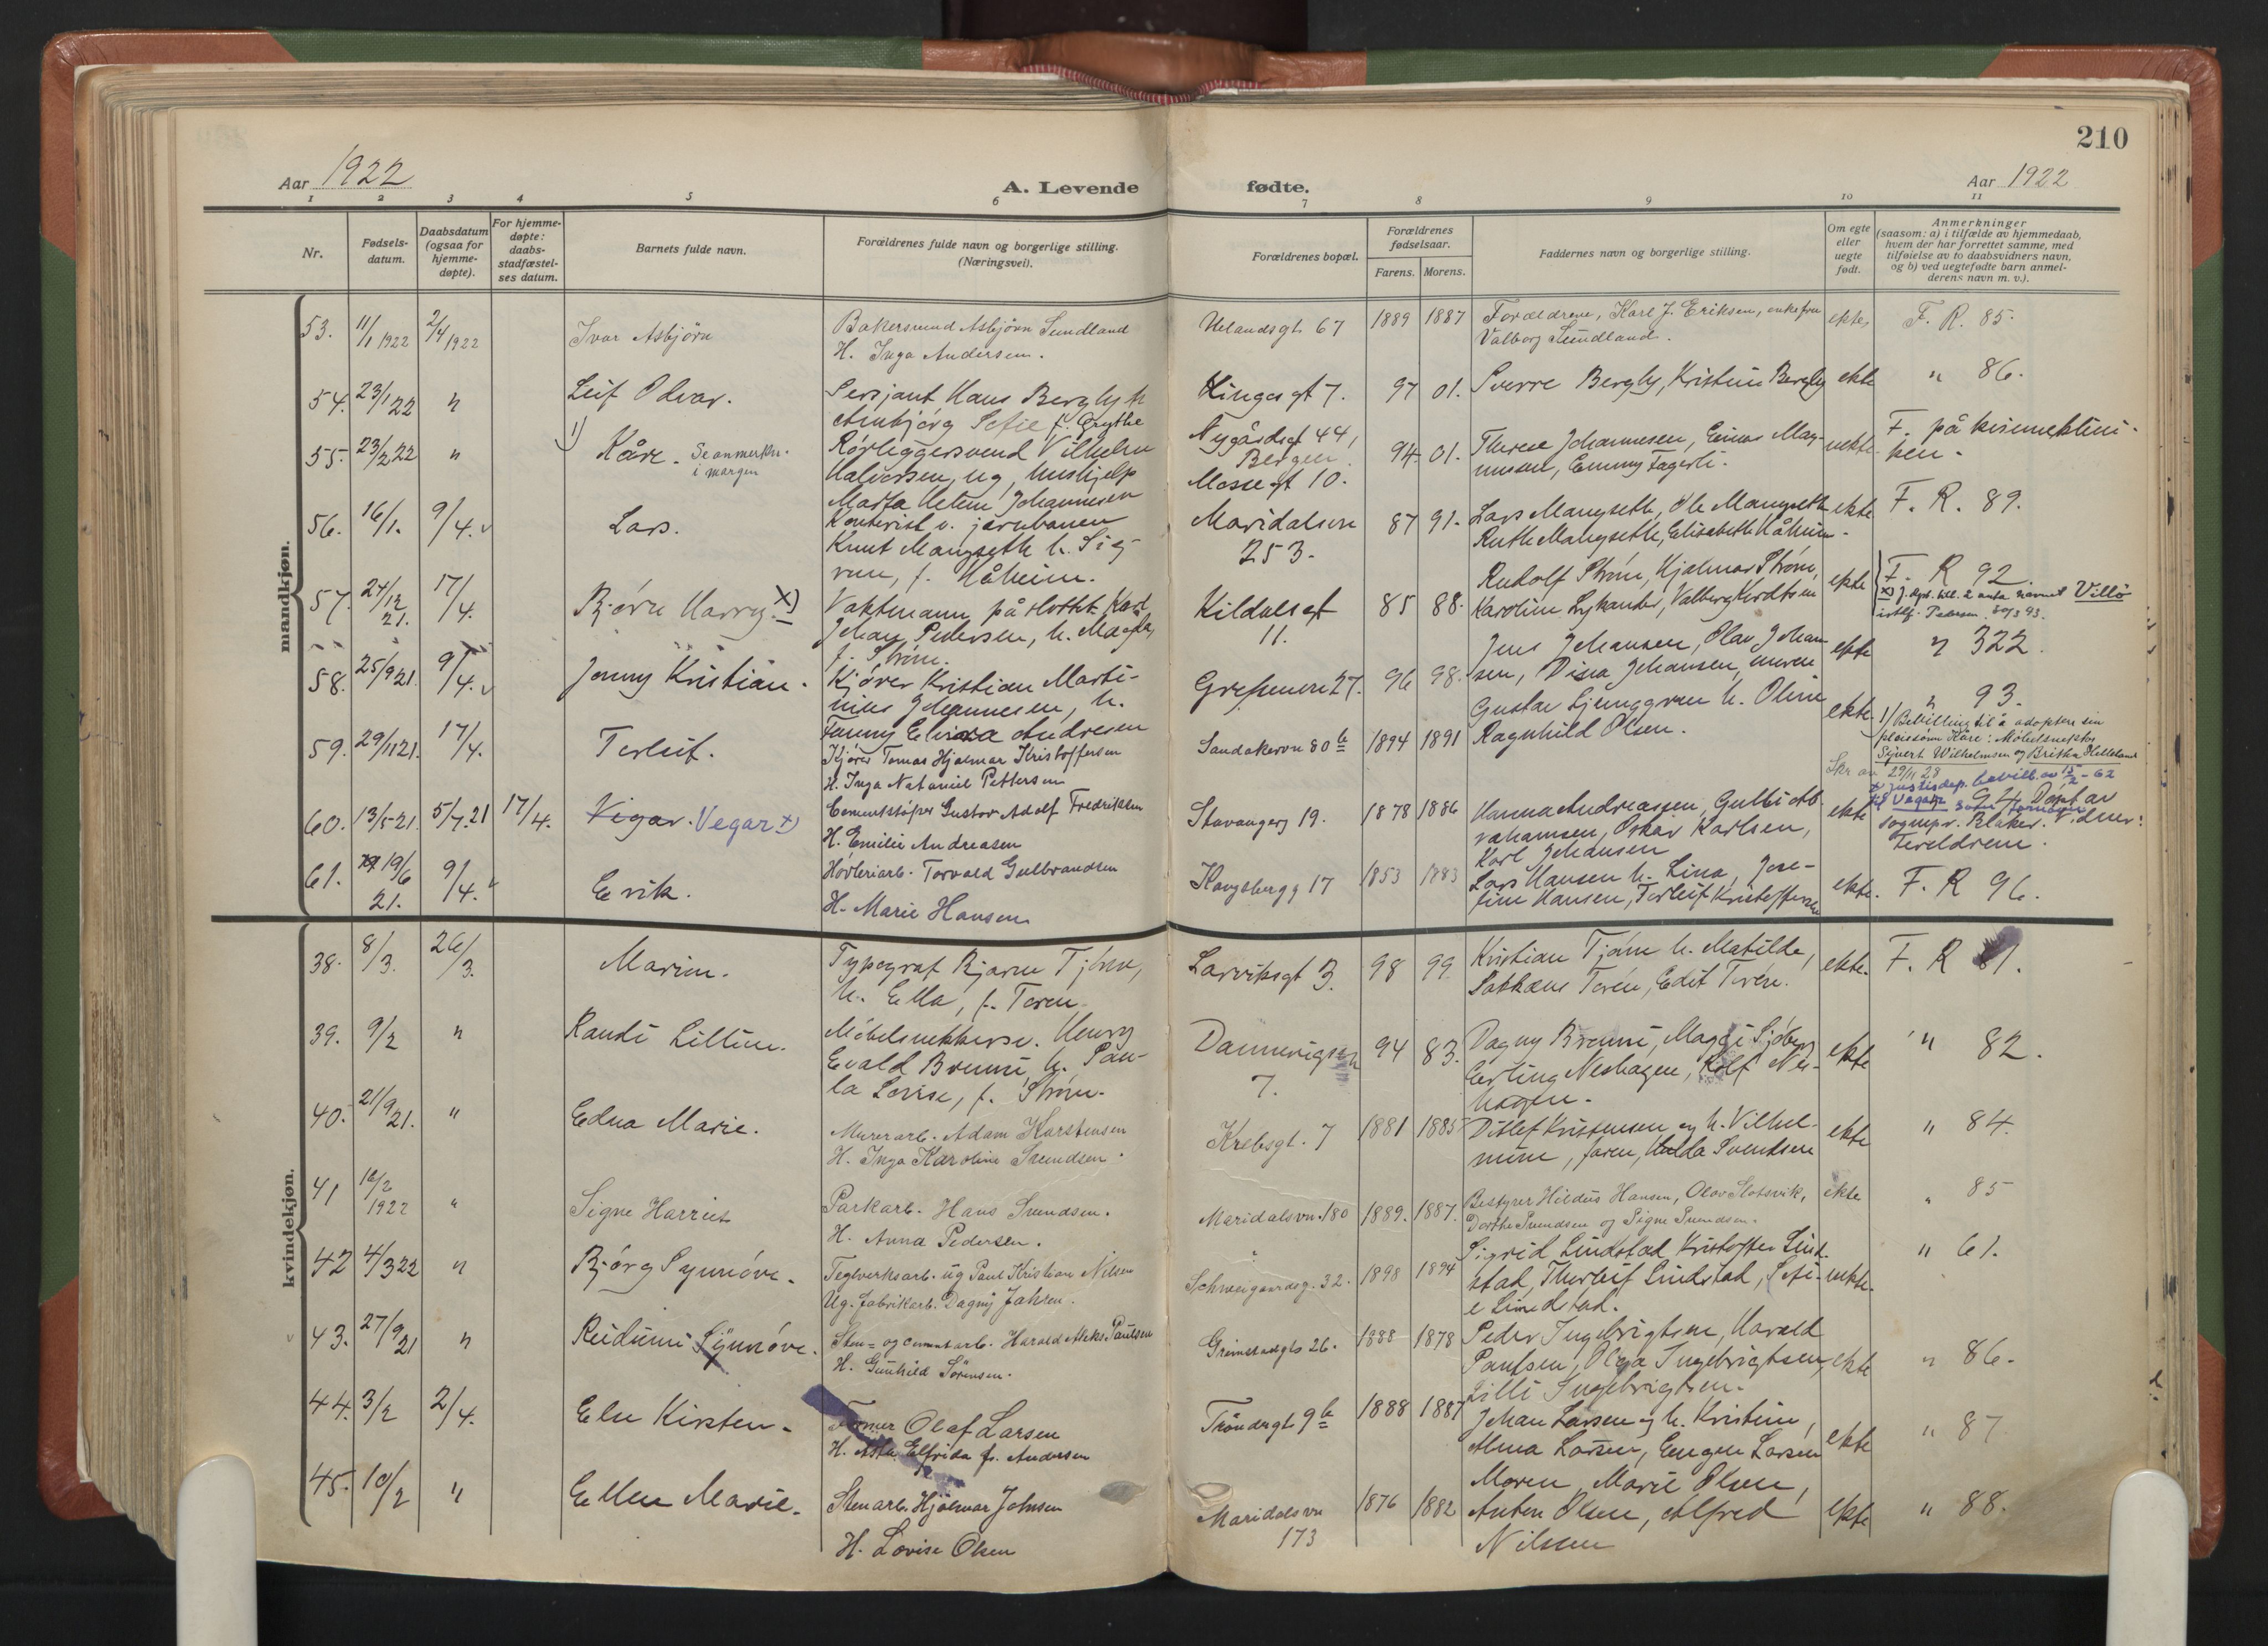 210
Aar 1922
A. Levende fødte.
Aar 1922
1 2 3 4 5 6 7 8 9 10 11
Nr.
Fødsels-
datum.
Daabsdatum
(ogsaa for
hjemme-
døpte).
For hjemme-
døpte:
daabs-
stadfæstel-
ses datum.
Barnets fulde navn.
Forældrenes fulde navn og borgerlige stilling.
(Næringsvei).
Forældrenes bopæl.
Forældrenes
fødselsaar.
Farens. Morens.
Faddernes navn og borgerlige stilling.
Om egte
eller
uegte
født.
Anmerkninger
(saasom: a) i tilfælde av hjemmedaab,
hvem der har forrettet samme, med
tilføielse av to daabsvidners navn,
og b) ved uegtefødte barn anmel-
derens navn m. v.).
mandkjøn.
53. 11/1 1922 2/4 1922 Ivar Asbjørn
Bakersvend Asbjørn Sundland
H. Inga Andersen.
Uelandsgt. 67 1889 1887
Forældrene, Karl J. Eriksen, enkefru
Valborg Sundland.
ekte, F. R. 85.
54. 23/1 22 " Leif Odvar.
Sersjant Hans Bergby h
Arnbjørg Sofie f. Grythe
Kingos gt 7. 97 01.
Sverre Bergby, Kristine Bergby
ekte " 86.
55. 23/2 22 " 1) Kåre. Se anmerkn.
i margen
Rørleggersvend Vilhelm
Halvorsen, ug, hushjelp
Marta Helene Johannesen
Nygårdsgt 44,
Bergen.
Mossegt 10.
94. 01.
Therese Johannesen, Einar Mag-
nussen, Emmy Fagerli.
uekte. F. på kvinneklini-
ken.
56. 16/1. 9/4. Lars.
Kontorist v. jernbanen
Knut Mangseth h. Sig-
run, f. Håheim.
Maridalsvn
253.
87 91.
Lars Mangseth, Ole Mangseth
Ruth Mangseth, Elisabeth Håheim.
ekte F. R. 89.
57. 24/12 21. 17/4. Bjørn Harry. X)
Vaktmann på slottet Karl
Johan Pedersen, h. Magda,
f. Strøm.
Kildalsgt
11.
85 88.
Rudolf Strøm, Hjalmar Strøm,
Karoline Lykander, Valborg
ekte F. R 92.
navnet Villö
58. 25/9 21. 9/4. Jonny Kristian.
Kjører Kristian Marti-
nius Johannesen, h.
Fanny Elvira Andresen
Grefsenvn 27. 96 98.
Jens Johansen, Olav Johan-
sen, Disa Johansen, moren
ekte " 322.
59. 29/11 21. 17/4. Torleif.
Kjører Tomas Hjalmar Kristoffersen
H. Inga Natanie Pettersen
Sandakervn 80 b 1894 1891
Gustav Ljunggren h. Oline
Ragnhild Olsen.
ekte. " 93.
1) Bevilling til å adoptere sin
pleiesønn Kåre: Møbelsnekker
Sivert Wilhelmsen og Britha Helleland
29/11 28
60. 13/5 21. 5/7.21 17/4. Vigar. Vegar x)
Cementstøper Gustav Adolf Fredriksen
H. Emilie Andreasen
Stavangerg 19. 1878 1886
Hanna Andreassen, Gulbi Ab-
rahamsen, Oskar Karlsen,
Karl Johansen
ekte
x) Justisdep. bevill. av 15/2 - 62
Vegar som fornavn
94. Døpt av
sognepr. Blaker. Vidner:
Foreldrene.
61. 19/6 21. 9/4. Erik.
Høvleriarb. Torvald Gulbrandsen
H. Marie Hansen
Kongsbergg 17 1853 1883
Lars Hansen h. Lina, Jose-
fine Hansen, Torleif Kristoffersen
ekte. F. R 96.
kvindekjøn.
38. 8/3. 26/3. Marim.
Typograf Bjarne Tjörn,
h. Ella, f. Toren.
Larviksgt 3. 98 99.
Kristian Tjørn h. Matilde,
Torén, Edit Torén.
ekte. F. R 81.
39. 9/2 " Randi Lilline.
Møbelsnekkersv. Henry
Evald Brenni, h. Pau-
la Lovise, f. Strøm.
Dannevigsvn
7.
94 83.
Dagny Brenni, Maggi Sjøberg
Erling Neshagen, Rolf Nes-
hagen.
ekte " 82.
40. 21/9 21. " Edna Marie.
Murerarb. Adam Karstensen
H. Inga Karoline Svendsen.
Krebsgt. 7 1881 1885
Ditlef Kristensen og h. Vilhel-
mine, faren, Hulda Svendsen
ekte " 84.
41 16/2 1922 " Signe Harriet
Parkarb. Hans Svendsen.
H. Anna Pedersen.
Maridalsvn. 180 1889. 1887.
Bestyrer Hildus Hansen, Olav Slotsvik,
Dorthe Svendsen og Signe Svendsen.
ekte " 85
42 4/3 22 " Bjørg Synnøve.
Teglverksarb. ug Paul Kristian Nilsen
Ug. fabrikarb. Dagny Jahren.
Schweigaardsg. 32. 1898 1894
Sigrid Lindstad, Kristoffer Lind-
stad, Thorleif Lindstad, Sofi-
e Lindstad.
uekte. " 61.
43. 27/9 21 " Reidunn Synnøve.
Sten- og cementarb. Harald Aleks. Paulsen
H. Gunhild Sörensen.
Grimstadgt 26. 1888 1878
Peder Ingebrigtsen, Harald
Paulsen, Olga Ingebrigtsen,
Lilli Ingebrigtsen.
ekte " 86.
44. 3/2 2/4. Else Kirsten.
Former Olaf Larsen
H. Asta Elfrida f. Andersen
Tröndergt 9 b 1888 1887
Johan Larsen og h. Kristine,
Alma Larsen, Eugen Larsen
ekte " 87
45. 10/2 " Ellen Marie.
Stenarb. Hjalmar Johnsen
H. Lovise Olsen
Maridalsvn
173
1876 1882
Moren, Marie Olsen,
Anton Olsen, Alfred
Nilsen
ekte " 88.